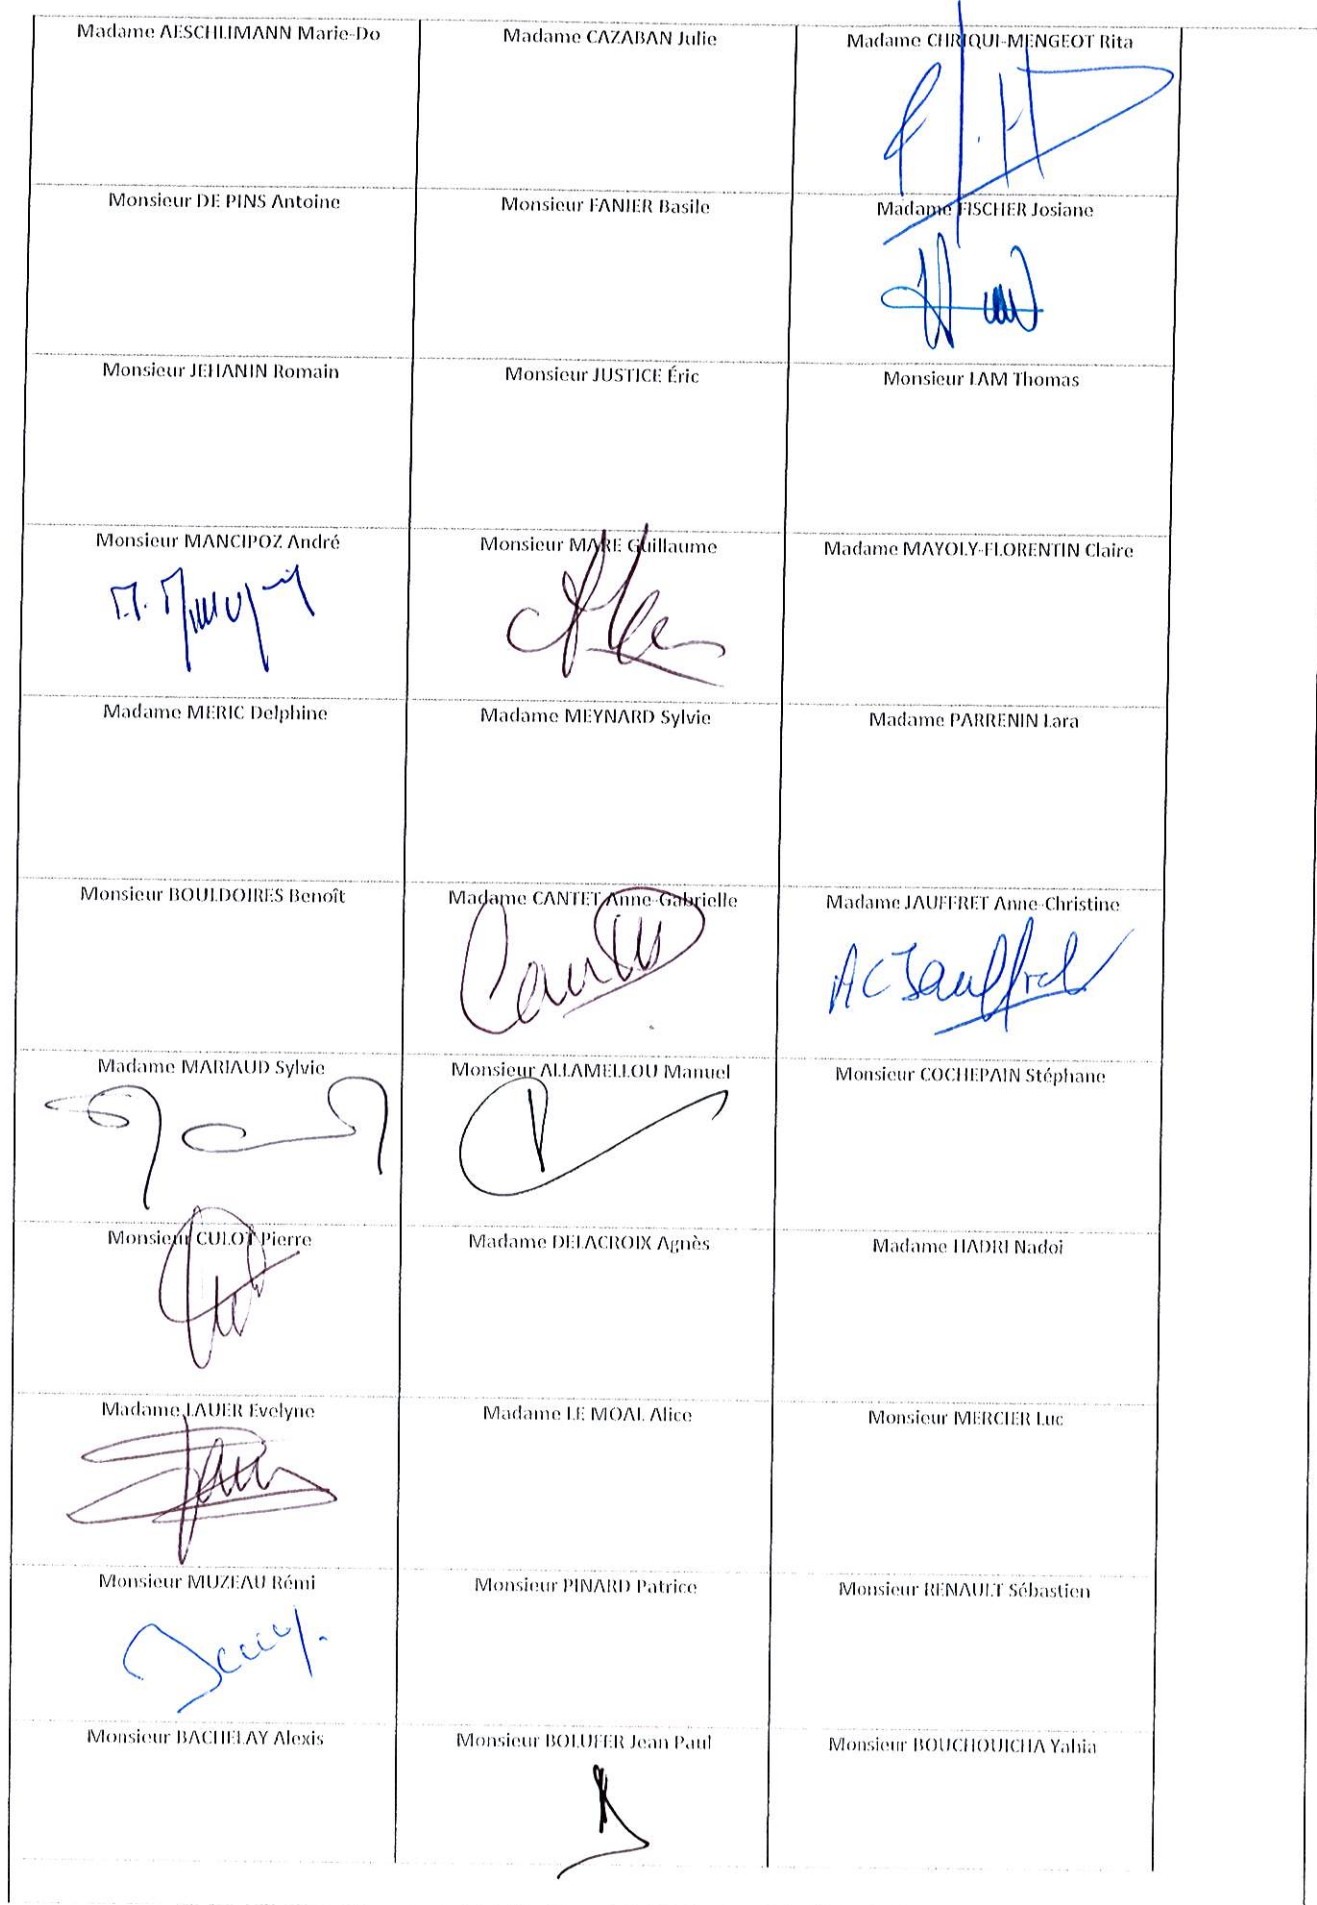 Madame AESCHLIMANN Marie-Do
Madame CAZABAN Julie
Madame CHRIQUI-MENGEOT Rita
Monsieur DE PINS Antoine
Monsieur FANIER Basile
Madame FISCHER Josiane
Monsieur JEHANIN Romain
Monsieur JUSTICE Éric
Monsieur LAM Thomas
Monsieur MANCIPOZ André
Monsieur MARE Guillaume
Madame MAYOLY-FLORENTIN Claire
Madame MERIC Delphine
Madame MEYNARD Sylvie
Madame PARRENIN Lara
Monsieur BOULDOIRES Benoît
Madame CANTET Anne-Gabrielle
Madame JAUFFRET Anne-Christine
AC Jauffret
Madame MARIAUD Sylvie
Monsieur ALLAMELLOU Manuel
Monsieur COCHEPAIN Stéphane
Monsieur CULOT Pierre
Madame DELACROIX Agnès
Madame HADRI Nadoi
Madame LAUER Evelyne
Madame LE MOAL Alice
Monsieur MERCIER Luc
Monsieur MUZEAU Rémi
Monsieur PINARD Patrice
Monsieur RENAULT Sébastien
Monsieur BACHELAY Alexis
Monsieur BOLUFER Jean Paul
Monsieur BOUCHOUICHA Yahia